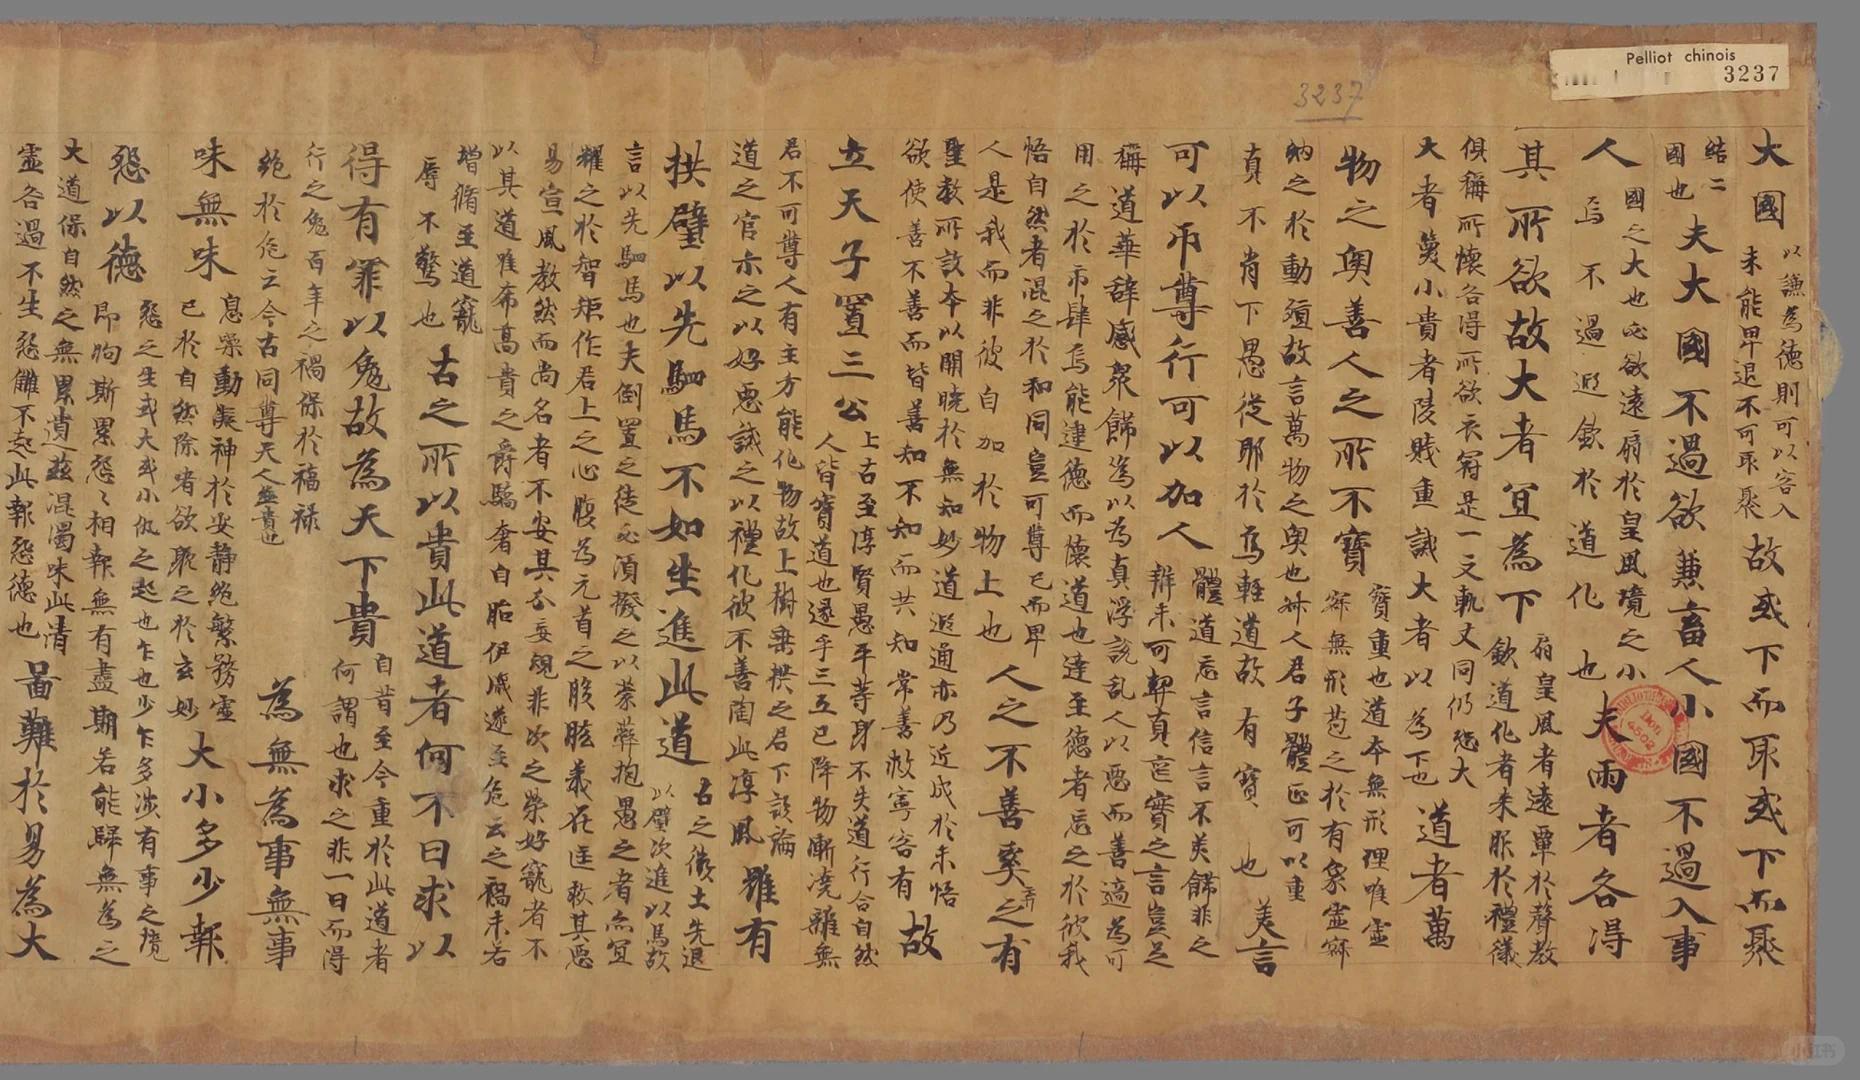 Pelliot chinois
3237
3237
大國
以謙為德則可以容入
未能卑退不可取聚
故或下而取或下而聚
結二
國也
夫大國不過欲兼畜人小國不過入事
人
國之大也必欲遠扇於皇風境之小
焉不過遐欽於道化也
夫兩者各得
其所欲故大者宜為下
扇皇風者遠覃於聲教
欽道化者来服於禮儀
俱稱所懷各得所欲衣冠是一文軌大同仍恐大
大者蔑小貴者陵賤重誡大者以為下也
道者萬
物之奧善人之所不寶
寶重也道本無形理唯虛
寂無形苞之於有象靈寂
納之於動殖故言萬物之奧也人君子體正可以重
真不肯下愚從耶於焉輕道故有寶也
美言
可以市尊行可以加人
體道忘言信言不美飾非之
辯未可契真寔實之言豈足
稱道華辞感眾飾為以為真浮說乱人以惡而善適為可
用之於市肆焉能建德而懷道也達至德者忘之於彼我
悟自然者混之於和同豈可尊己而卑
人是我而非彼自加於物上也
人之不善奚弃之有
聖教所設本以開曉於無知妙道遐通亦乃近成於未悟
欲使善不善而皆善知不知而共知常善救寧容有
故
立天子置三公
上古至淳賢愚平等身不失道行合自然
人皆寶道也逮乎三五已降物漸澆離無
君不可尊人有主方能化物故上樹垂拱之君下設論
道之官示之以好惡誡之以禮化彼不善陶此淳風
雖有
拱璧以先駟馬不如坐進此道
古之徵士先退
以璧次進以馬故
言以先駟馬也夫倒置之徒必須撥之以蒙蔽抱愚之者亦宜
耀之於智炬作君上之心腹為元首之股肱義在匡救其惡
易宣風教然而尚名者不安其分妄覬非次之榮好寵者不
以其道唯希高貴之爵驕奢自貽伊慼遂至危云之禍未若
增脩至道寵
辱不驚也
古之所以貴此道者何不曰求以
得有罪以兔故為天下貴
自昔至今重於此道者
何謂也求之非一日而得
行之兔百年之禍保於福禄
絕於危云今古同尊天人並貴也
為無為事無事
味無味
息柴動凝神於安静絕繁務靈
已於自然除嗜欲取之於玄妙
大小多少報
怨以德
怨之生或大或小仇之起也乍也少乍多涉有事之境
即徇斯累怨〻相報無有盡期若能歸無為之
大道保自然之無累遺茲混濁味此清
靈咎過不生怨雠不起此報怨德也
啚難於易為大